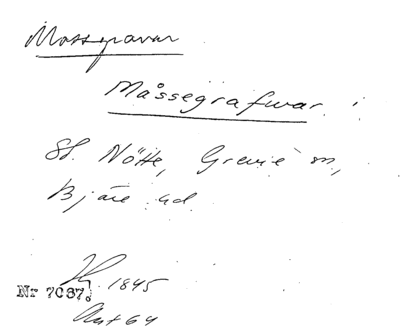 Mossgravar
Måssegrafwar i
St. Nötte, Grevie sn,
Bjäre hd.
1845
Nr 7C37.
Akt 64